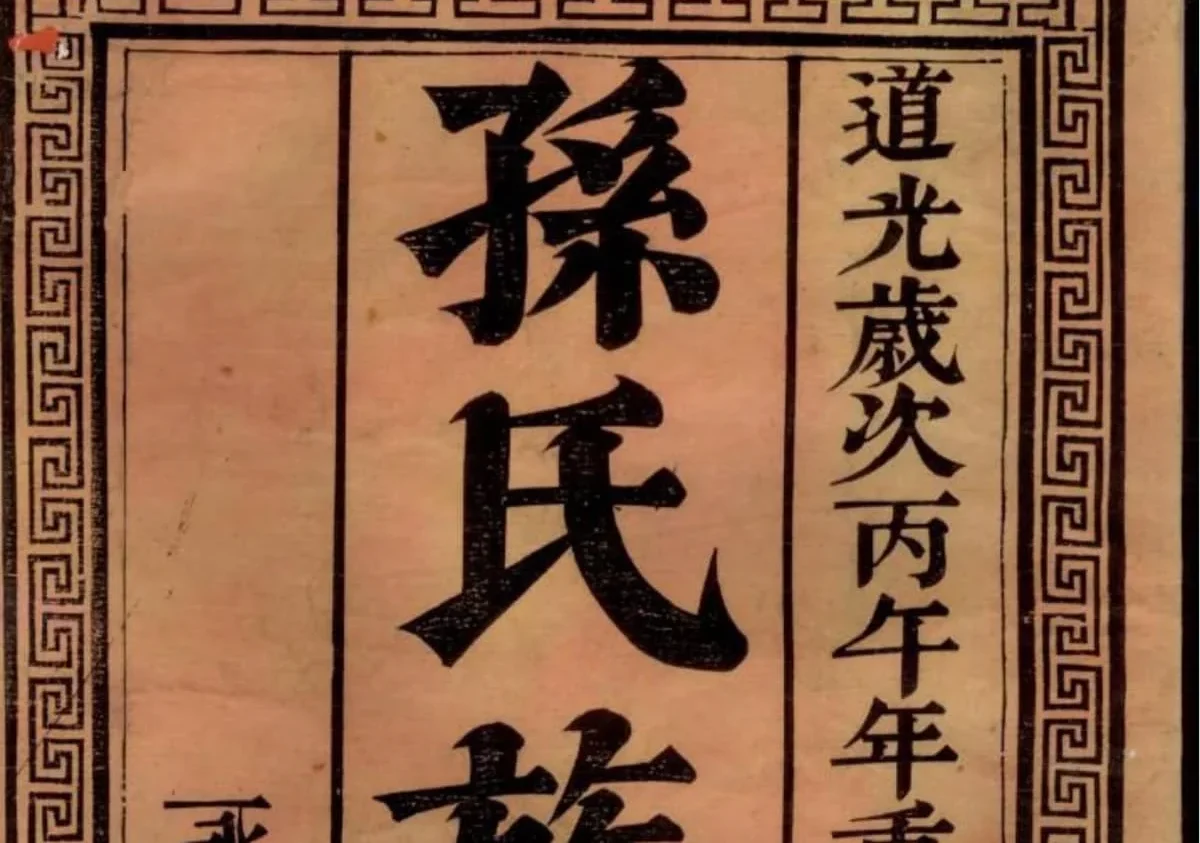 道光歲次丙午年重
孫氏族